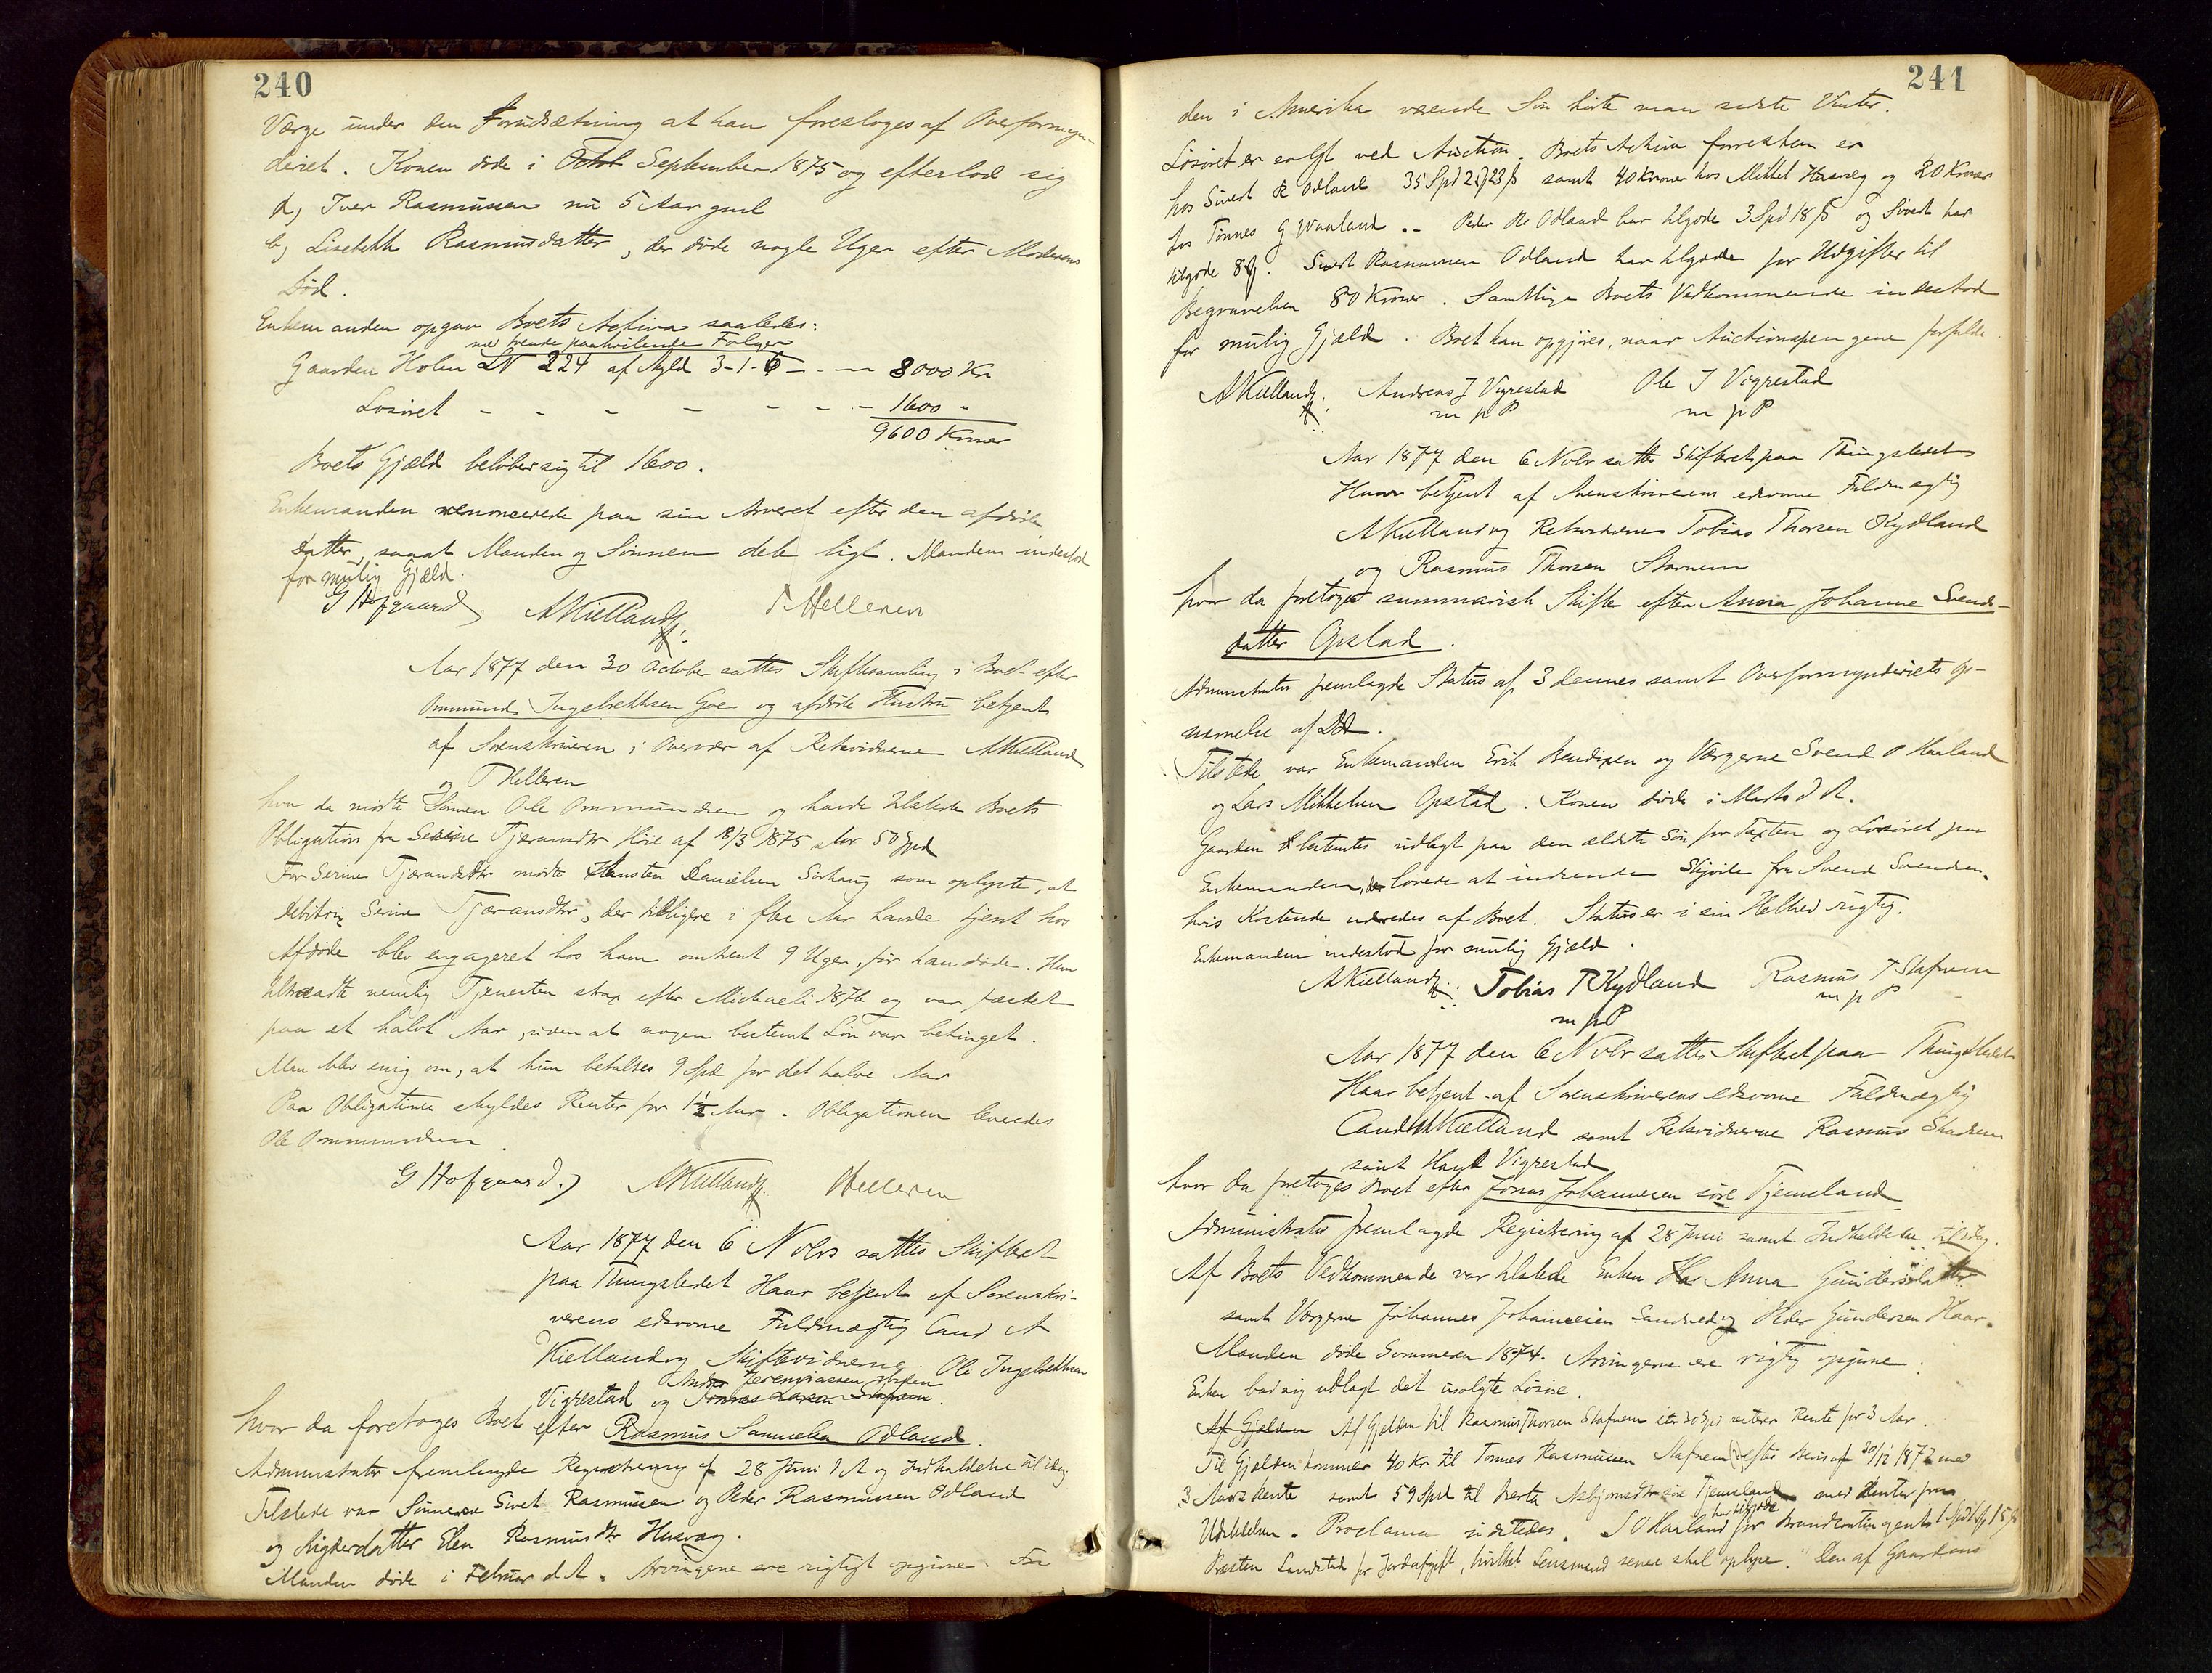 240
Værge under den Forudsætning at han foresloges af Overformyn-
deriet. Konen døde i Octob September 1875 og efterlod sig
a, Iver Rasmussen nu 5 Aar gml
b, Lisebeth Rasmusdatter, der døde nogle Uger efter Moderens
Død.
Enkemanden opgav Boets Activa saaledes:
med tvende paahvilende Folger
Gaarden Holen LN 224 af Skyld 3-1-6 - - - 8000 Kr
Løsøret - - - - - - - 1600 "
9600 Kroner
Boets Gjæld beløber sig til 1600.
Enkemanden renoncerede paa sin Arveret efter den afdøde
Datter, saaat Manden og Sønnen dele ligt. Manden indestod
for mulig Gjæld.
G Hofgaard AKielland f. T Helleren
Aar 1877 den 30 October sattes Skiftesamling i Boet efter
Ommund Ingebrethsen Goe og afdøde Hustru betjent
af Sorenskriveren i Overvær af Retsvidnerne AKielland
og T Helleren
hvor da mødte Sønnen Ole Ommundsen og havde tilstede Boets
Obligation fra Serine Tjæransdtr Høie af 18/3 1875 stor 50 Spd
For Serine Tjærandsdtr mødte Danielsen Sirhaug som oplyste, at
Debitrix Serine Tjæransdtr, der tidligere i flere Aar havde tjent hos
Afdøde blev engageret hos ham omtrent 9 Uger, før han døde. Hun
tiltraadte nemlig Tjenesten strax efter Michaeli 1876 og var fæstet
paa et halvt Aar, uden at nogen bestemt Løn var betinget.
Man blev enig om, at hun betaltes 9 Spd for det halve Aar
Paa Obligationen skyldes Renter for 1½ Aar. Obligationen leveredes
Ole Ommundsen
G Hofgaard AKielland f. Helleren
Aar 1877 den 6 Novbr sattes Skifteret
paa Thingstedet Haar betjent af Sorenskri-
verens edsvorne Fuldmægtig Cand A
Kielland og Skiftevidnerne Ole Ingebrethsen
Andr Jeremiassen
Vigrestad og Tønnes Larsen Stafnem.
hvor da foretoges Boet efter Rasmus Samuelsen Odland.
Administrator fremlagde Registrering af 28 Juni d A og Indkaldelse til idag.
Tilstede var Sønnerne Sivert Rasmussen og Peder Rasmussen Odland
og Svigerdatter Elen Rasmusdtr Husveg.
Manden døde i Februar d. A. Arvingerne ere rigtigt opgivne. Fra
241
den i Amerika værende Søn hørte man sidste Vinter.
Løsøret er solgt ved Auction. Boets Activa forresten er
hos Sivert R Odland 35 Spd 2 23 ß samt 40 Kroner hos Mikkel Husveg og 20 Kroner
hos Tønnes G Waaland. - Peder R Odland har tilgode 3 Spd 18 ß og Sivert har
tilgode 8 . Sivert Rasmussen Odland har tilgode for Udgifter til
Begravelsen 80 Kroner. Samtlige Boets Vedkommende indestod
for mulig Gjæld. Boet kan opgjøres, naar Auctionspengene forfalde.
AKielland f. Andreas J Vigrestad Ole I Vigrestad
m p P m p P
Aar 1877 den 6 Novbr sattes Skifteret paa Thingstedet
Haar betjent af Sorenskriverens edsvorne Fuldmægtig
AKielland og Retsvidnerne Tobias Thorsen Kydland
og Rasmus Thorsen Stavnem
hvor da foretoges summarisk Skifte efter Anna Johanne Svends-
datter Opstad.
Administrator fremlagde Status af 3 dennes samt Overformynderiets Op-
nævnelse af .
Tilstede var Enkemanden Erik Bendixen og Værgerne Svend O Haaland
og Lars Mikkelsen Opstad. Konen døde i Marts d A.
Gaarden bestemtes udlagt paa den ældste Søn for Taxten og Løsøret paa
Enkemanden, der lovede at indsende Skjøde fra Svend Svendsen.
hvis Kostende udredes af Boet. Status er i sin Helhed rigtig.
Enkemanden indestod for mulig Gjæld.
AKielland f. Tobias T Kydland Rasmus T Stafnem
m p P m p P
Aar 1877 den 6 Novbr sattes Skifteret paa Thingstedet
Haar betjent af Sorenskriverens edsvorne Fuldmægtig
Cand AKielland samt Retsvidnerne Rasmus
samt Vigrestad
hvor da foretoges Boet efter Jonas Johannesen søre Tjemsland
Administrator fremlagde Registrering af 28 Juni samt Indkaldelse til idag.
Af Boets Vedkommende var tilstede Enken Anna Gundersdatter
samt Værgerne Johannes Johannesen Sandved og Peder Gundersen Haar.
Manden døde Sommeren 1874. Arvingerne ere rigtig opgivne.
Enken bad sig udlagt det usolgte Løsøre.
Af Gjælden Af Gjælden til Rasmus Thorsen Stafnem 30 Spd resterer Rente for 3 Aar.
Til Gjælden kommer 40 Kr til Tønnes Rasmussen Stafnem efter Bevis af 30/12 1872 med
3 Aars Rente samt 59 Spd til Berta Asbjørnsdtr søre Tjemsland med Renter fra
har tilgode
Udstedelsen. Proclama udstedes. S O Haaland for Brandcontingent 1 Spd
Præsten Landstad for Jordafgift, hvilket Lensmand senere skal oplyse. Den af Gaardens